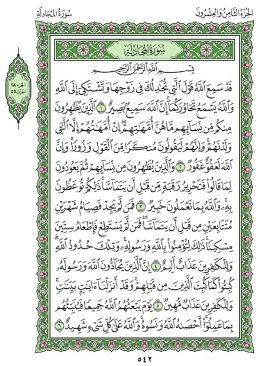 الجزء الثامن والعشرون
سورة المجادلة
سورة المجادلة
بسم الله الرحمن الرحيم
قد سمع الله قول التي تجادلك في زوجها وتشتكي إلى
الله والله يسمع تحاوركما إن الله سميع بصير ١ الذين يظاهرون
منكم من نسائهم ما هن أمهاتهم إن أمهاتهم إلا الئي
ولدنهم وإنهم ليقولون منكرا من القول وزورا وإن
الله لعفو غفور ٢ والذين يظاهرون من نسائهم ثم يعودون
لما قالوا فتحرير رقبة من قبل أن يتماسا ذلكم توعظون
به والله بما تعملون خبير ٣ فمن لم يجد فصيام شهرين
متتابعين من قبل أن يتماسا فمن لم يستطع فإطعام ستين
مسكينا ذلك لتؤمنوا بالله ورسوله وتلك حدود الله
وللكافرين عذاب أليم ٤ إن الذين يحادون الله ورسوله
كبتوا كما كبت الذين من قبلهم وقد أنزلنا آيات بينات
وللكافرين عذاب مهين ٥ يوم يبعثهم الله جميعا فينبئهم
بما عملوا أحصاه الله ونسوه والله على كل شيء شهيد ٦
٥٤٢